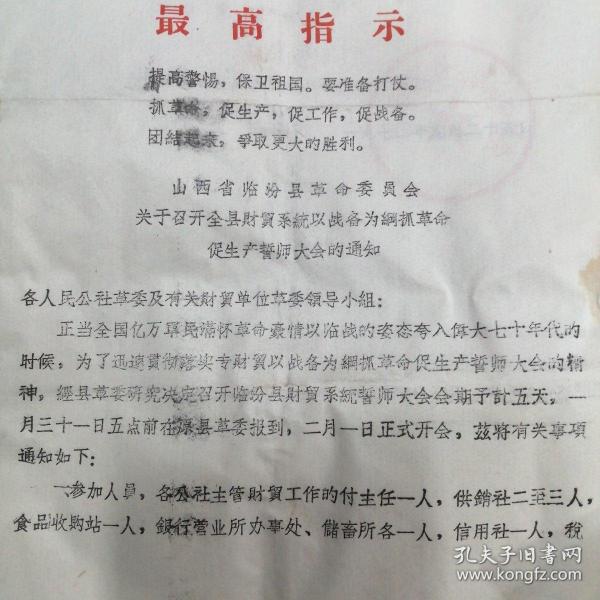 最高指示
提高警惕，保卫祖国。要准备打仗。
抓革命，促生产，促工作，促战备。
团結起来，爭取更大的胜利。
山西省临汾县革命委員会
关于召开全县財貿系統以战备为綱抓革命
促生产誓师大会的通知
各人民公社革委及有关財貿单位革委領导小組：
正当全国亿万軍民滿怀革命豪情以临战的姿态夸入偉大七十年代的
时候，为了迅速貫彻落实专財貿以战备为綱抓革命促生产誓师大会的精
神，經县革委研究决定召开临汾县財貿系統誓师大会会期予計五天，一
月三十一日五点前在县革委报到，二月一日正式开会，茲將有关事項
通知如下：
一参加人員，各公社主管財貿工作的付主任一人，供銷社二至三人，
食品收购站一人，銀行营业所办事处、儲畜所各一人，信用社一人，稅
孔夫子旧书网
www.kongfz.com